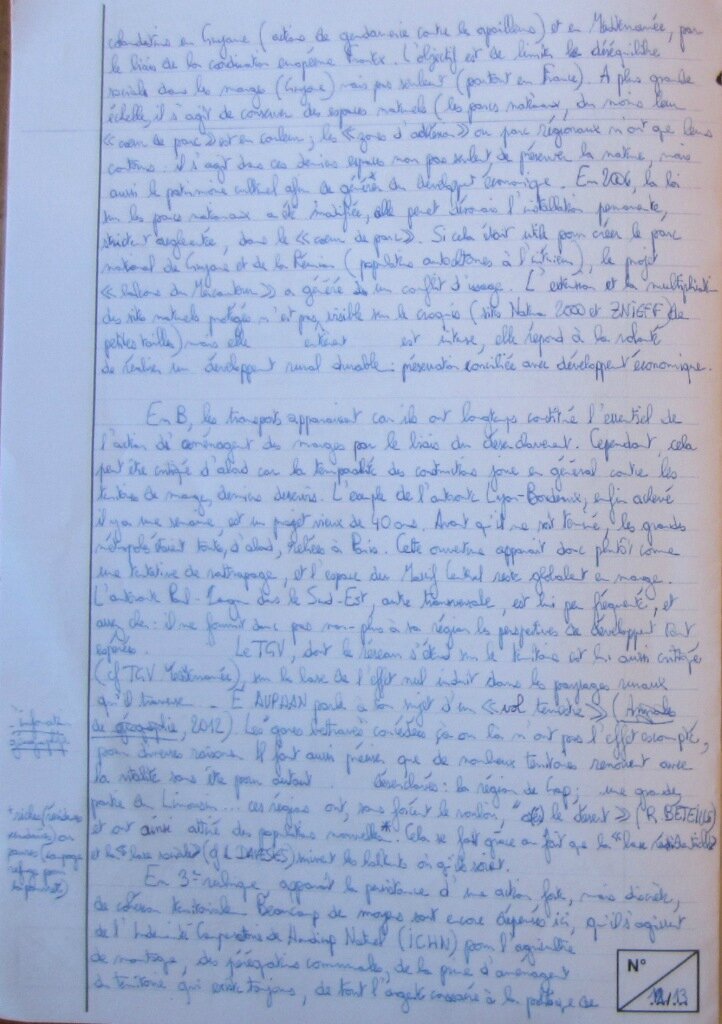 clandestins en Guyane (actions de gendarmerie contre les orpailleurs) et en Méditerranée, par
le biais de la coordination européenne Frontex. L'objectif est de limiter les déséquilibres
sociaux dans les marges (Guyane) mais pas seulemt (partout en France). A plus grande
échelle, il s'agit de conserver des espaces naturels (les parcs nationaux, du moins leur
« cœur de parc » est en couleur ; les « zones d'adhésion » ou parc régionaux n'ont que leurs
contours. Il s'agit dans ces derniers espaces non pas seulemt de préserver la nature, mais
aussi le patrimoine culturel afin de générer du développt économique. En 2006, la loi
sur les parcs nationaux a été modifiée, elle permet désormais l'installation permanente,
strictemt réglementée, dans le « cœur de parc ». Si cela était utile pour créer le parc
national de Guyane et de la Réunion (populations autochtones à l'intérieur), le projet
« balcons du Mercantour » a généré un conflit d'usage. L'extension et la multiplication
des sites naturels protégés n'est pas visible sur le croquis (sites Natura 2000 et ZNIEFF de
petites tailles) mais elle est intense, elle répond à la volonté
de réaliser un développemt rural durable : préservation conciliée avec développemt économique.
En B, les transports apparaissent car ils ont longtemps constitué l'essentiel de
l'action de aménagemt des marges par le biais du désenclavemt. Cependant, cela
peut être critiqué d'abord car la temporalité des constructions joue en général contre les
territoires de marge, derniers desservis. L'exemple de l'autoroute Lyon-Bordeaux, enfin achevé
il y a une semaine, est un projet vieux de 40 ans. Avant qu'il ne soit terminé, les grandes
métropoles étaient toutes, d'abord, reliées à Paris. Cette ouverture apparait donc plutôt comme
une tentative de rattrapage, et l'espace du Massif Central reste globalemt en marge.
L'autoroute Pau-Langon dans le Sud-Est, autre transversale, est lui peu fréquenté, et
assez cher : il ne fournit donc pas non-plus à sa région les perspectives de développemt
espérées. Le TGV, dont le réseau s'étend sur le territoire est lui aussi critiqué
(cf TGV Méditerranée), sur la base de l'effet nul induit dans les paysages ruraux
qu'il traverse. E AUPHAN parle à son sujet d'un « vol terrestre » (Annales
de géographie, 2012). Les "gares betteraves" concédées çà on là n'ont pas l'effet escompté,
pour diverses raisons. Il faut aussi préciser que de nombreux territoires renouent avec
la vitalité sans être pour autant désenclavés : la région de Gap ; une grande
partie du Limousin... ces régions ont, sans forcer le vouloir, le désert » (R. BETEILLE)
et ont ainsi attiré des populations nouvelles*. Cela se fait grâce au fait que la "base résidentielle"
et la "base sociale" (cf L DAVEZIES) suivent les habitants où qu'ils soient.
* riches (résidences
secondaires) ou
pauvres (campagne
refuge pour
la pauvreté)
En 3e rubrique, apparait la persistance d'une action forte, mais discrète,
de cohésion territoriale. Beaucoup de moyens sont encore dépensés ici, qu'il s'agissent
de l'Indemnité Compensatoire de Handicap Naturel (ICHN) pour l'agriculture
de montagne, des péréquations communales, de la prime d'aménagemt
du territoire qui existe toujours, de tout l'argent consacré à la politique de
N°
12/13